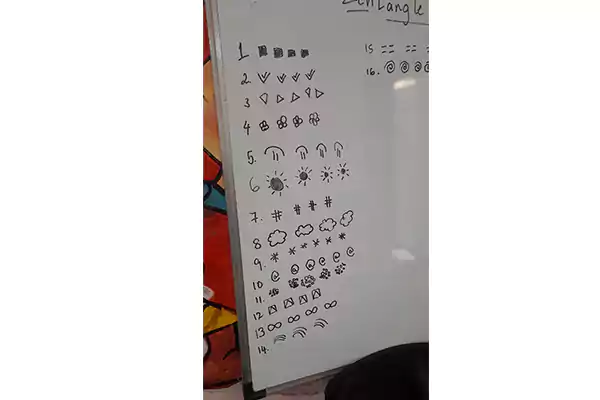 Zentangle
1
2.
3
4
5.
6
7. # # # #
8
9. * * * * * *
10
11.
12
13 ∞ ∞ ∞ ∞
14.
15 == == =
16. @ @ @ @